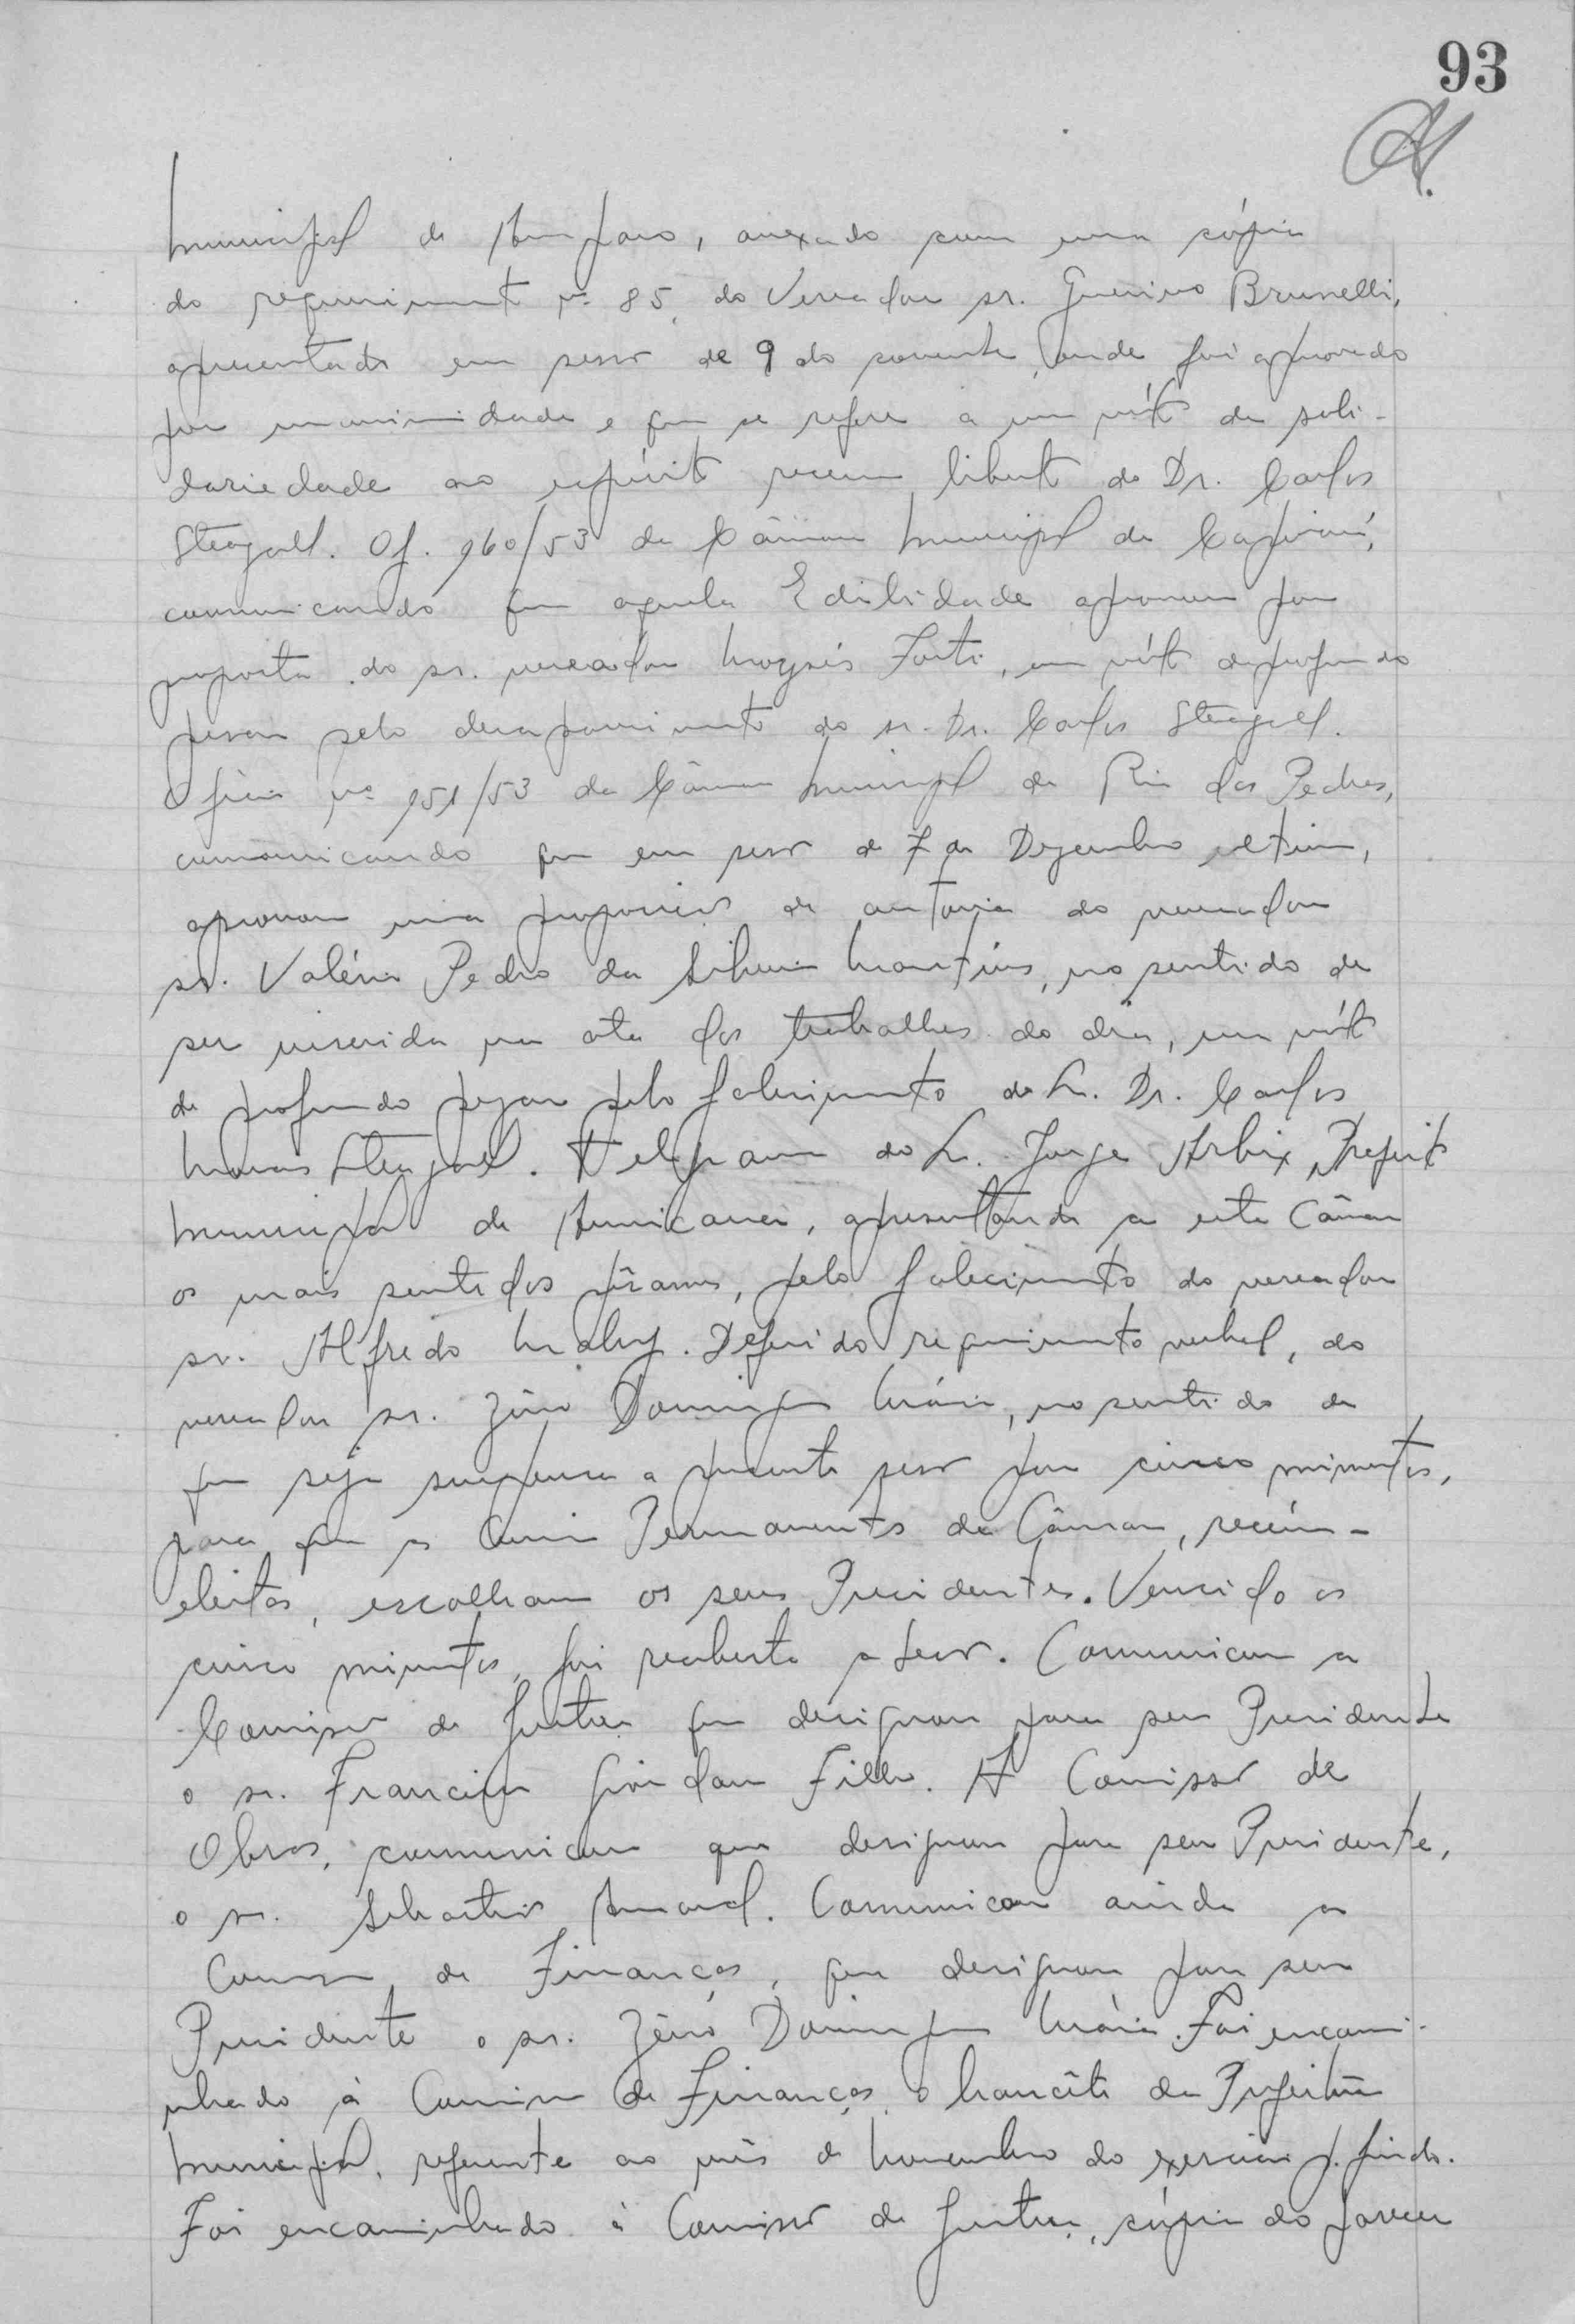 93
Municipal de Amparo, anexado com uma cópia
do requerimento nº 85, do Vereador sr. Guerino Brunelli,
apresentado em sessão de 9 do corrente, onde foi aprovado
por unanimidade e que se refere a um vóto de soli-
dariedade ao espírito recem liberto do Dr. Carlos
Steagall. Of. 960/53 da Câmara Municipal de Capivarí,
comunicando que aquela Edilidade aprovou por
proposta do sr. vereador Moysés Forti, um vóto de profundo
pesar pelo desaparecimento do sr. Dr. Carlos Steagall.
Ofício nº 951/53 da Câmara Municipal de Rio das Pedras,
comunicando que em sessão de 7 de Dezembro ultimo,
aprovou uma proposição de autoria do vereador
sr. Valério Pedro da Silveira Martins, no sentido de
ser inserida na ata dos trabalhos do dia, um vóto
de profundo pezar pelo falecimento do Sr. Dr. Carlos
Steagall. Telegrama do Sr. Jorge Arbix, Prefeito
Municipal de Americana, apresentando a esta Câmara
os mais sentidos pêsames, pelo falecimento do vereador
sr. Alfredo Maluf. Deferido requerimento verbal, do
vereador sr. Zêno Domingues Mária, no sentido de
que seja suspensa a presente sessão por cinco minutos,
para que as Comissões Permanentes da Câmara, recém-
eleitas, escolham os seus Presidentes. Vencido os
cinco minutos, foi reaberta a sessão. Comunicou a
Comissão de Justiça que designou para seu Presidente
o sr. Francisco Filho. A Comissão de
Obras, comunicou que designou para seu Presidente,
o sr. Sebastião Amaral. Comunicou ainda a
Comissão de Finanças, que designou para seu
Presidente o sr. Zêno Domingues Mária. Foi encami-
nhado à Comissão de Finanças o balancête da Prefeitura
Municipal, referente ao mês de Novembro do exercício p. findo.
Foi encaminhado à Comissão de Justiça, cópia do parecer